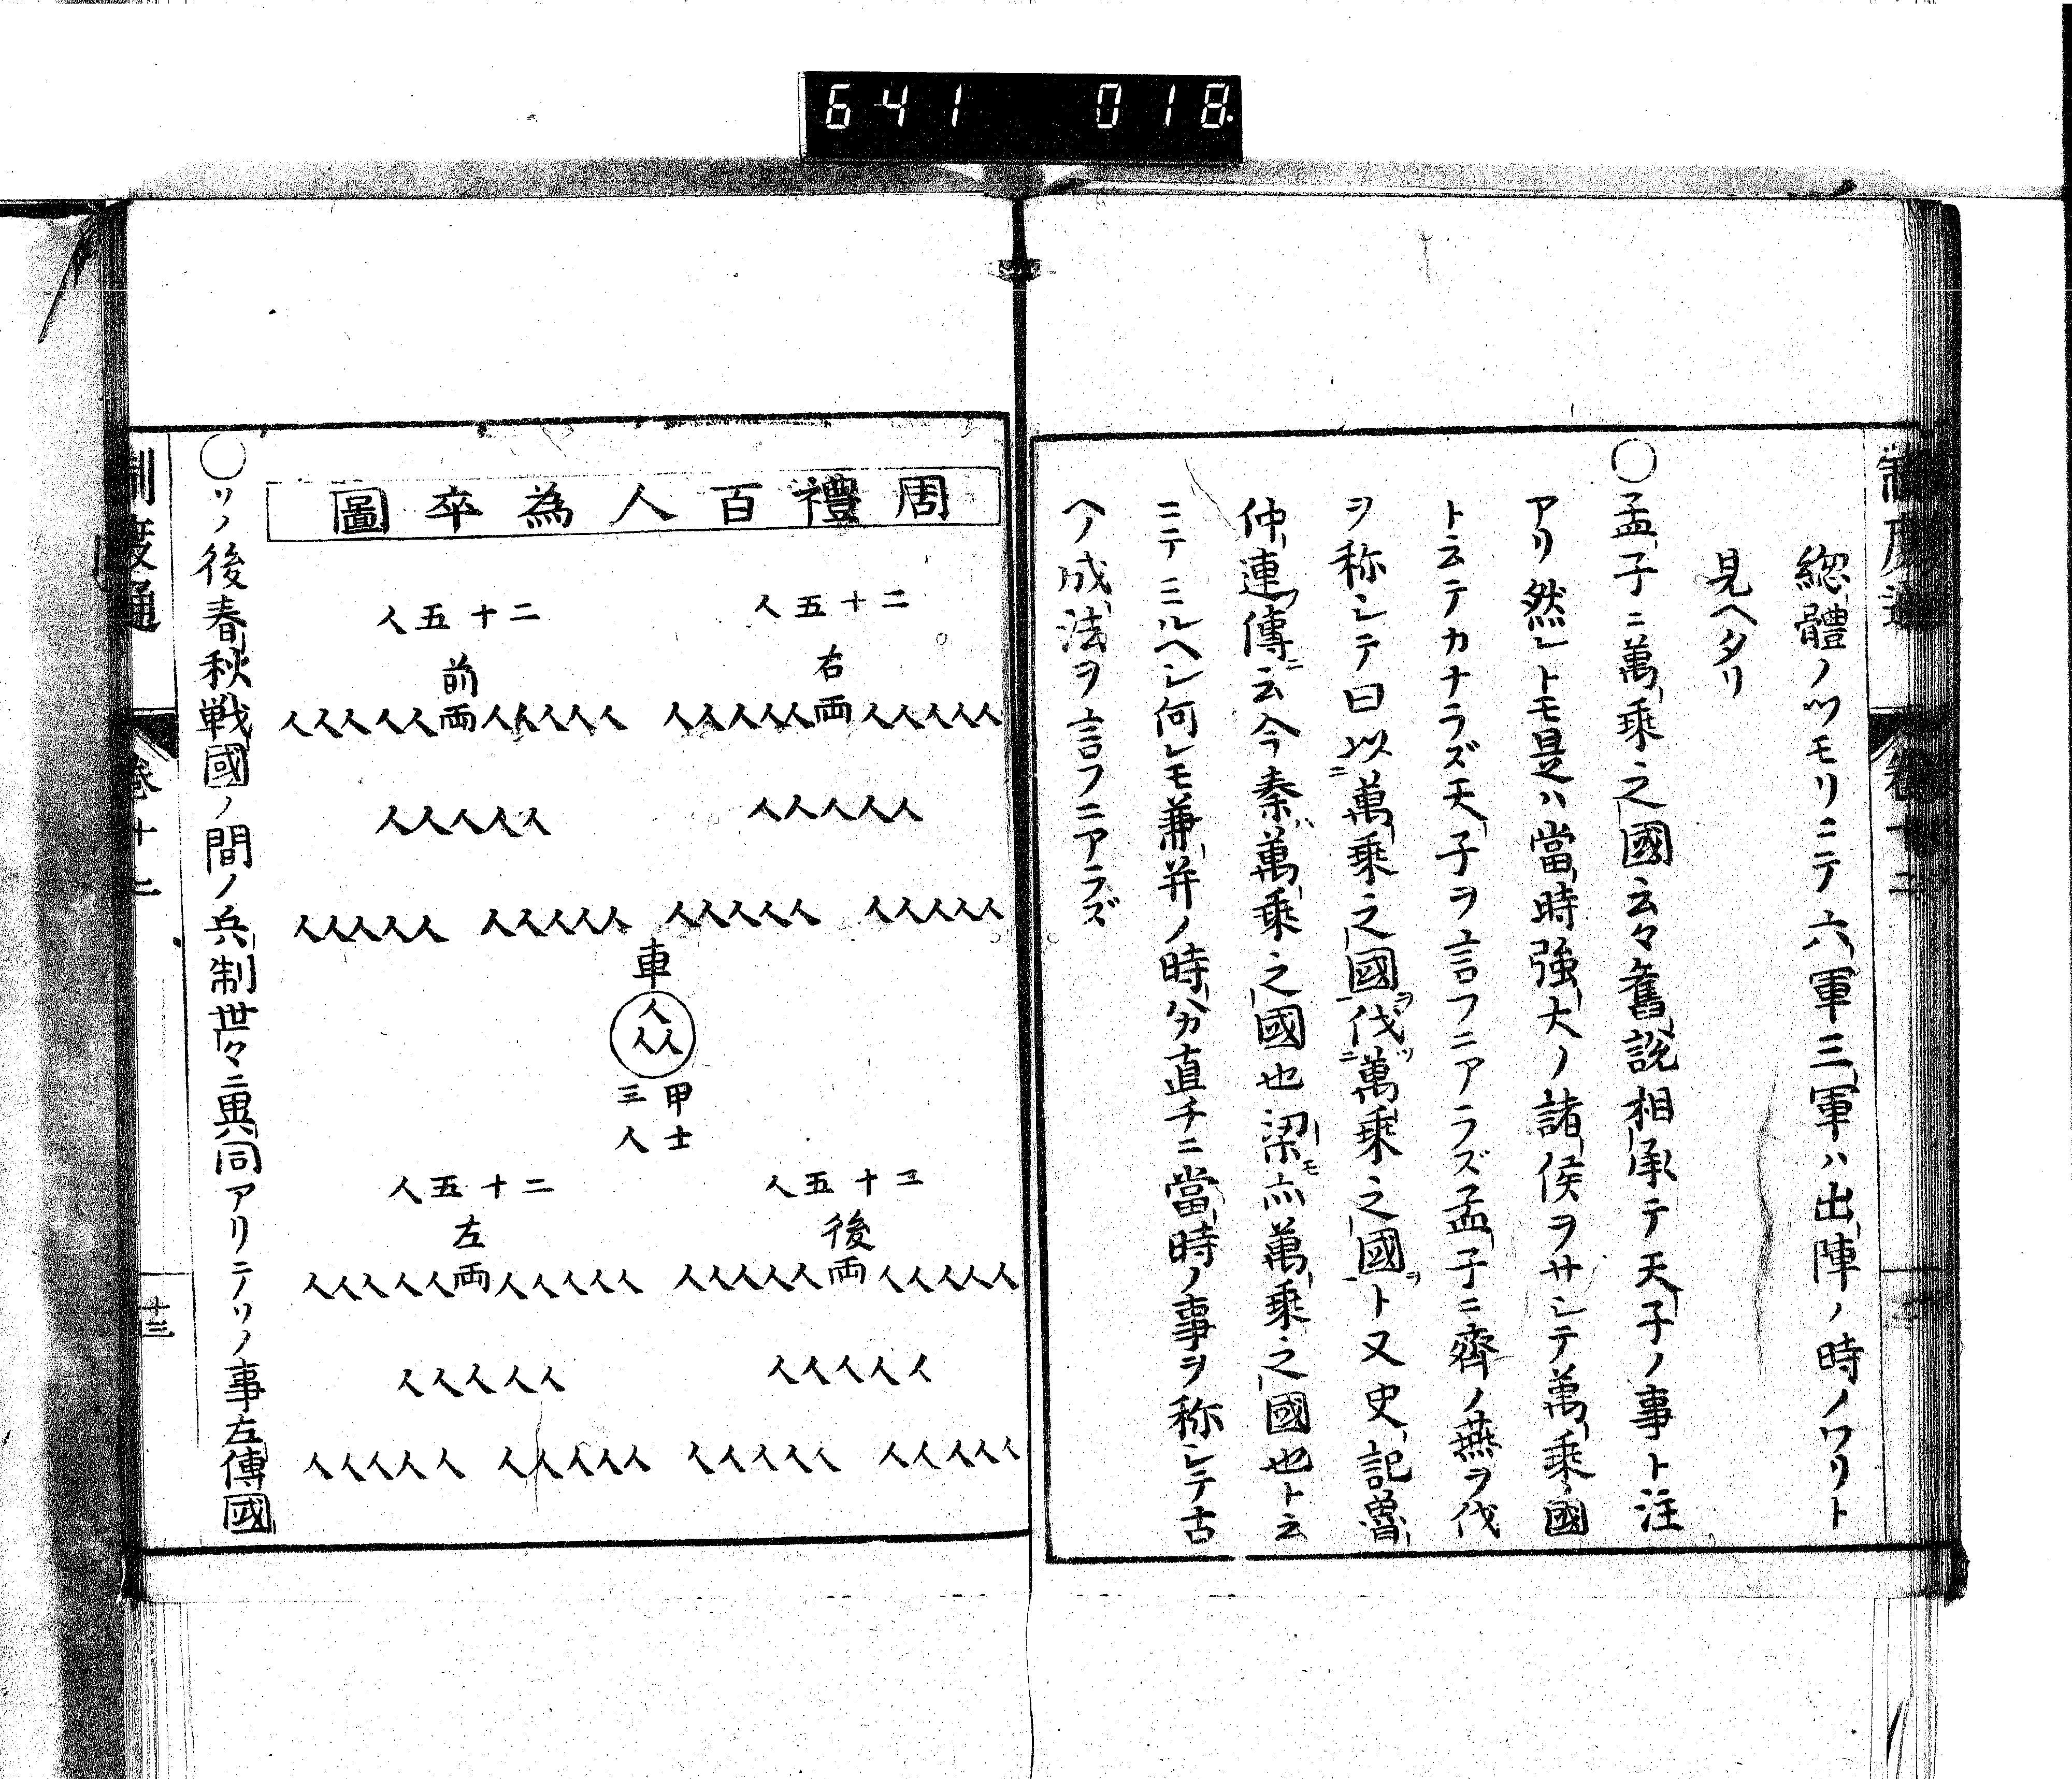 641 018.
制度通 卷十二
総體ノツモリニテ六軍三軍ハ出陣ノ時ノワリト
見ヘタリ
〇孟子ニ萬乘之國云々舊說相承テ天子ノ事ト注
アリ然レトモ是ハ當時強大ノ諸侯ヲサシテ萬乘國
ト云テカナラズ天子ヲ言フニアラズ孟子ニ齊ノ燕ヲ伐
ヲ称シテ曰以萬乘之國伐萬乘之國ト又史記魯
仲連傳云今秦萬乘之國也梁亦萬乘之國也ト云
ニテミルヘシ何レモ兼并ノ時ハカ直チニ當時ノ事ヲ称シテ古
ヘノ成法ヲ言フニアラズ
周禮百人為卒圖
二十五人
右
人人人人人両人人人人人
人人人人人
人人人人人 人人人人人
二十五人
前
人人人人人両人人人人人
人人人人人
人人人人人 人人人人人
車
人
人人
甲士
三人
二十五人
後
人人人人人両人人人人人
人人人人人
人人人人人 人人人人人
二十五人
左
人人人人人両人人人人人
人人人人人
人人人人人 人人人人人
〇ソノ後春秋戦國ノ間ノ兵制世々ニ異同アリニノソノ事左傳國
制度通 卷十二 十三